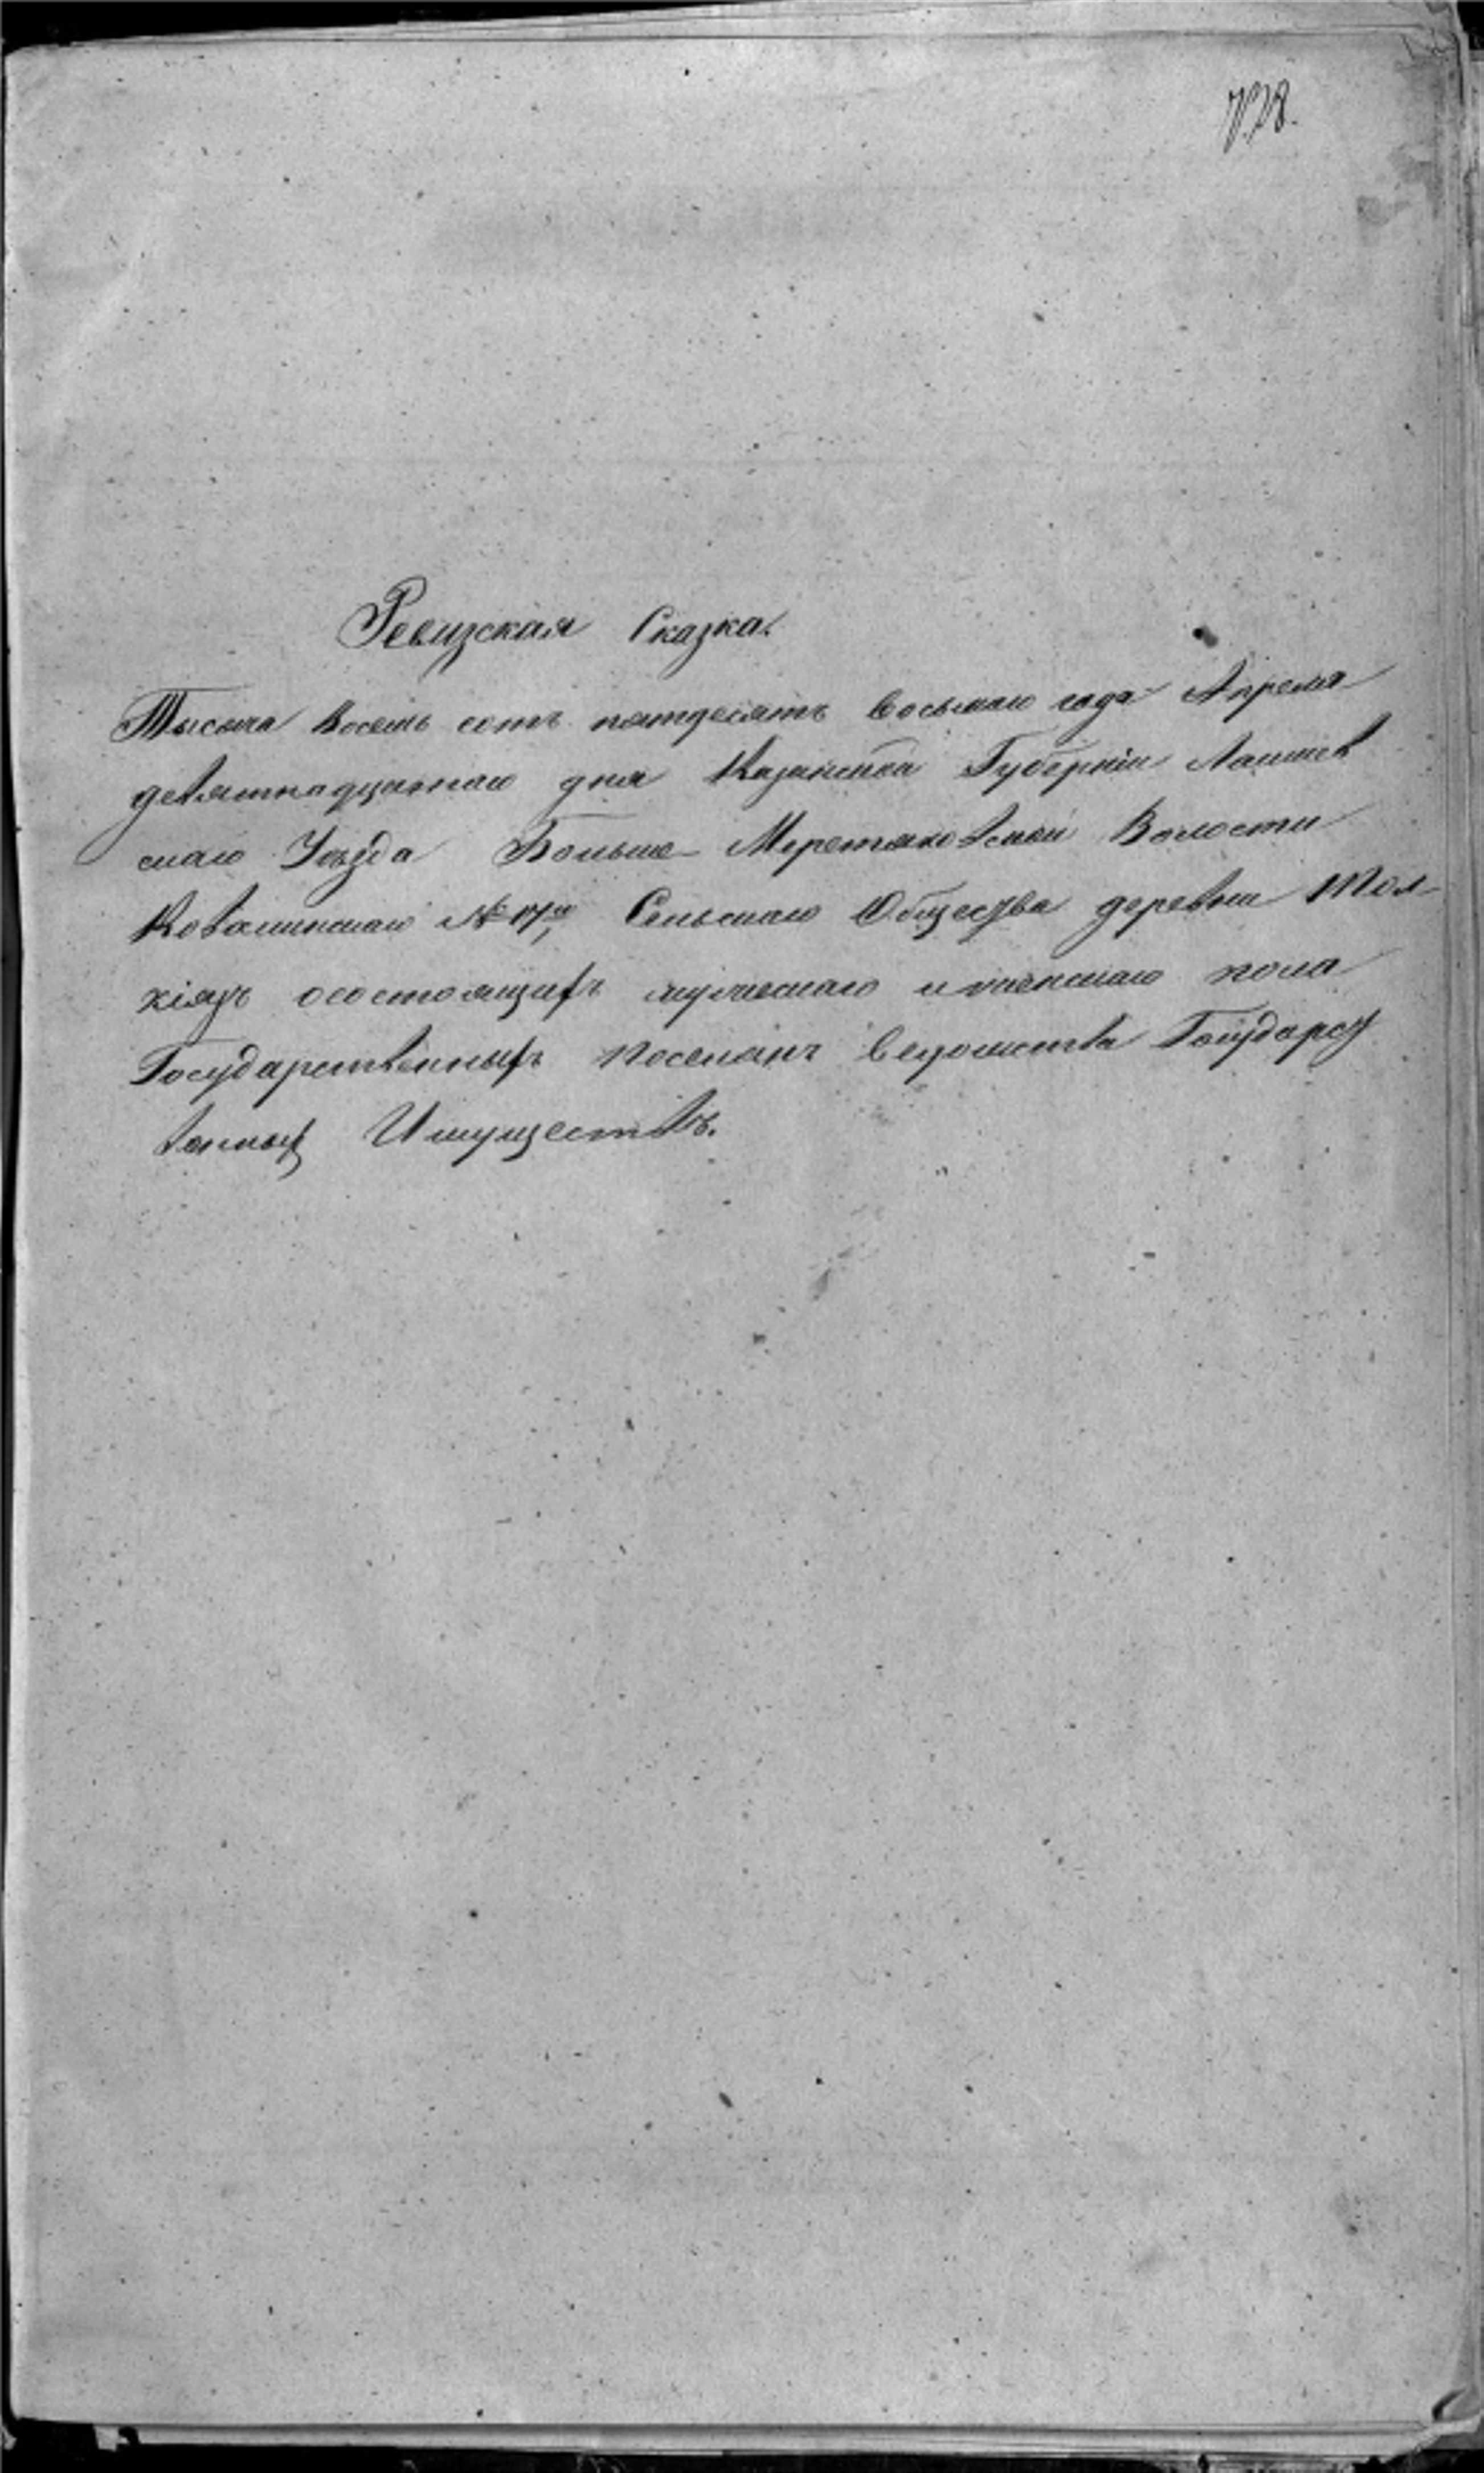 728.
Ревизская Сказка.
Тысяча восемь сотъ пятдесятъ восьмаго года Апреля
девятнадцатаго дня Казанской Губерніи Лаишев
скаго Уѣзда Больше Меретяковской Волости
Ковалинскаго № 17го Сельскаго Общества деревни
осостоящихъ мужескаго и женскаго пола
Государственныхъ поселянъ ведомства Государст
венных Имуществъ.